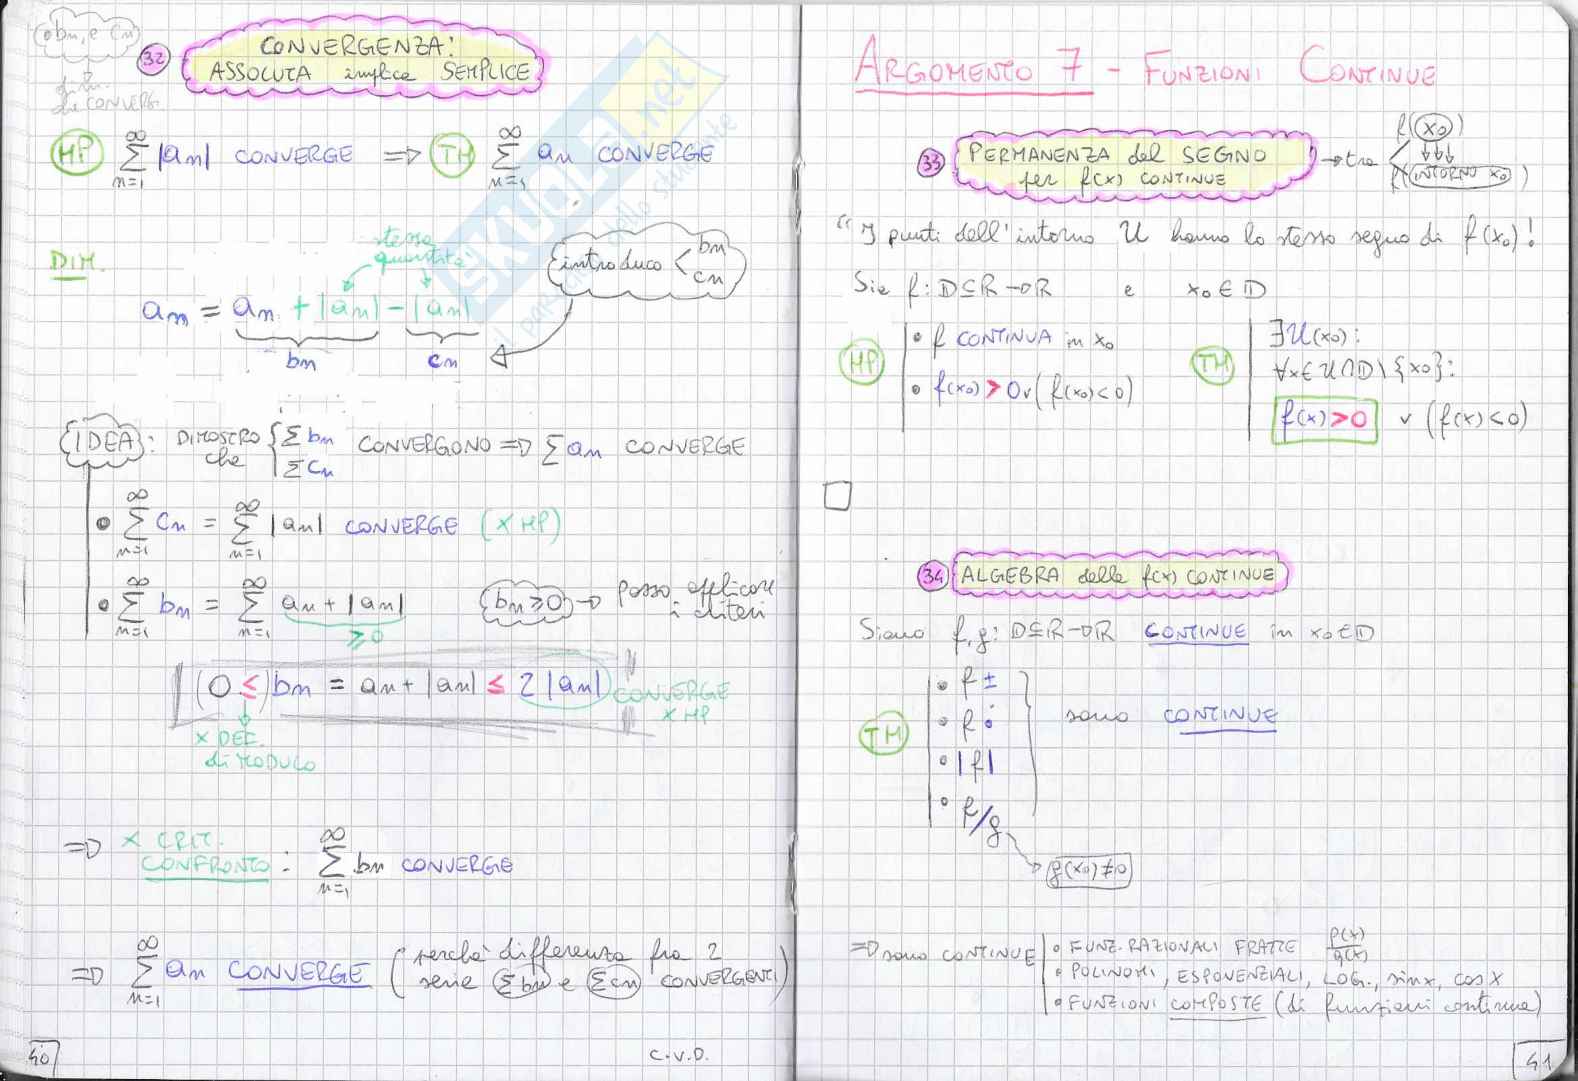 bn e cn
di CONVERG.
32 CONVERGENZA:
ASSOLUTA implica SEMPLICE
HP ∞∑n=1 |an| CONVERGE => TH ∞∑n=1 an CONVERGE
DIM.
stessa quantità
introduco < bn cn
an = an + |an| - |an|
bn cn
IDEA: DIMOSTRO che { ∑bn ∑cn CONVERGONO => ∑an CONVERGE
• ∞∑n=1 cn = ∞∑n=1 |an| CONVERGE (x HP)
• ∞∑n=1 bn = ∞∑n=1 an + |an| bn ≥ 0 → posso applicare i criteri
≥ 0
(0 ≤) bn = an + |an| ≤ 2|an| CONVERGE x HP
x DEF. di MODULO
=> x CRIT. CONFRONTO: ∞∑n=1 bn CONVERGE
=> ∞∑n=1 an CONVERGE (perchè differenza fra 2
serie ∑bn e ∑cn CONVERGENTI)
C.V.D.
40
SKUOLA.net
dello studente
ARGOMENTO 7 - FUNZIONI CONTINUE
33 PERMANENZA del SEGNO
per f(x) CONTINUE → tra < f(x0) f(INTORNO x0)
"I punti dell'intorno U hanno lo stesso segno di f(x0)!
Sia f: D⊆R→R e x0 ∈ D
HP • f CONTINUA in x0
• f(x0) > 0 v (f(x0) < 0)
TH ∃U(x0):
∀x ∈ U∩D\{x0}:
f(x) > 0 v (f(x) < 0)
□
34 ALGEBRA delle f(x) CONTINUE
Siano f, g: D⊆R→R CONTINUE in x0 ∈ D
TH • f ±
• f ·
• |f|
• f/g
} sono CONTINUE
g(x0) ≠ 0
=> sono CONTINUE • FUNZ. RAZIONALI FRATTE P(x)/Q(x)
• POLINOMI, ESPONENZIALI, LOG., sinx, cosx
• FUNZIONI COMPOSTE (di funzioni continue)
41